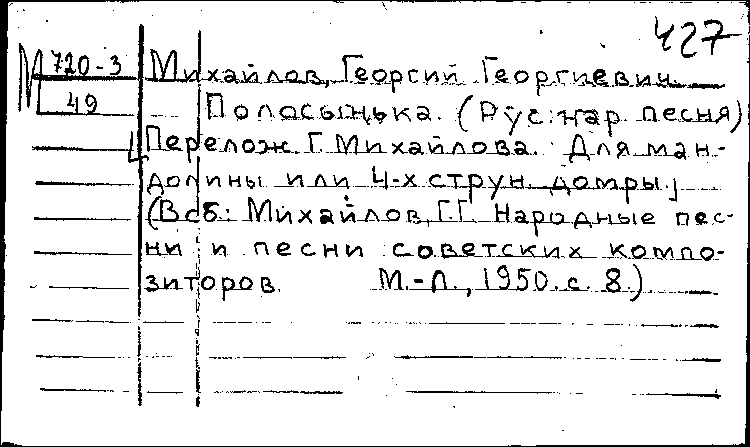 427
М 720-3
49
Михайлов, Георгий Георгиевич.
Полосынька. (Рус. нар. песня)
[Перелож. Г. Михайлова. Для ман-
долины или 4-х струн. домры.]
(В сб: Михайлов, Г.Г. Народные пес-
ни и песни советских компо-
зиторов. М.-Л., 1950. с. 8.)